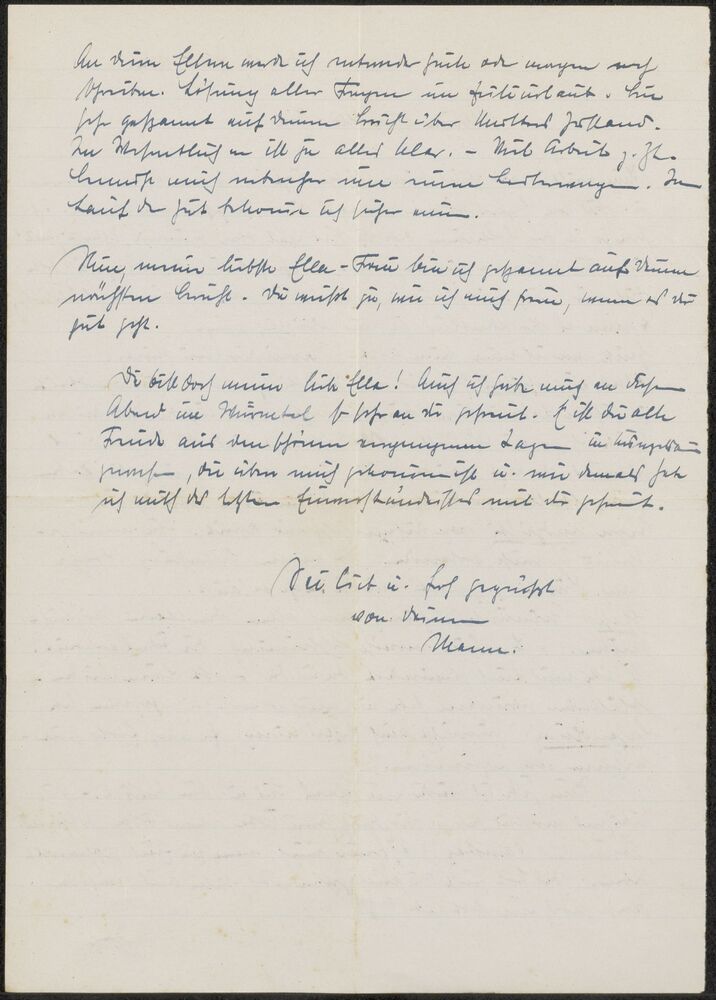 An deine Eltern werde ich entweder heute oder morgen noch
schreiben. Lösung aller Fragen im Heiliurlaub. Bin
sehr gespannt auf deinen Bericht über Mutters Zustand.
Im Wesentlichen ist ja alles klar. – Mit Arbeit z. Zt.
Im
Lauf der Zeit bekomme ich sicher
Nun, meine liebste Ella-Frau bin ich gespannt auf deinen
nächsten Brief. Du weißt ja, wie ich mich freue, wenn es dir
gut geht.
Du bist doch meine liebe Ella! Auch ich habe mich an diesem
Abend im Wurmtal so sehr an dir gefreut. Es ist die alte
Freude aus den schönen vergangenen Tagen in
gewesen, die über mich gekommen ist u. wie damals habe
ich mich des letzten Einverständnisses mit dir gefreut.
Sei lieb u. froh gegrüßt
von deinem
Mann.